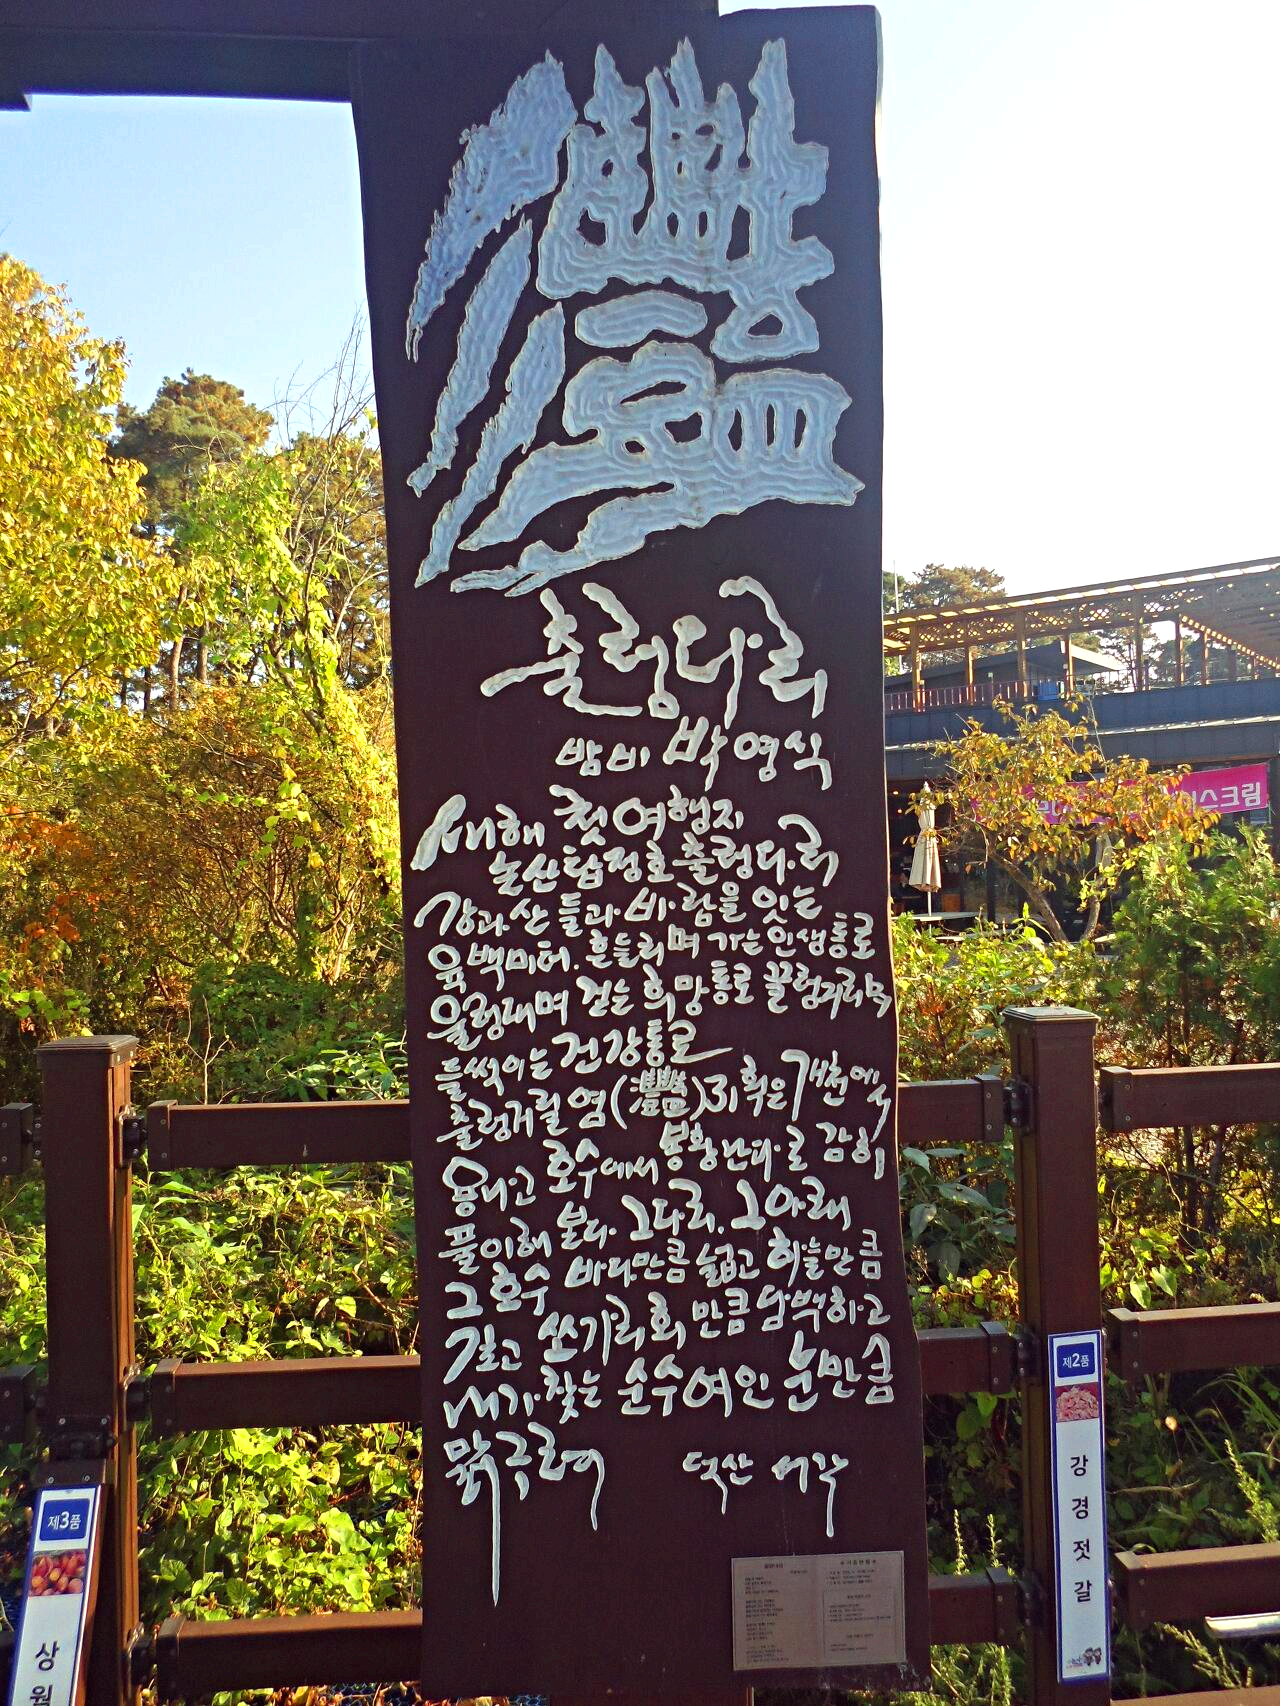 灩
출렁다리
밤비 박영식
새해 첫 여행지
논산탑정호 출렁다리
강과 산 들과 바람을 잇는
육백미터. 흔들리며 가는 인생통로
울렁대며 걷는 희망통로 꿀렁거리며
들썩이는 건강통로
출렁거릴 염(灩)31획은 개천에서
용나고 호수에서 봉황난다로 감히
풀이해 본다. 그다리. 그아래
그 호수 바다만큼 넓고 하늘만큼
깊고 쏘가리회 만큼 담백하고
내가 찾는 순수여인 눈만큼
맑구로여
덕산 서각
이스크림
제2품
강경젓갈
제3품
상월